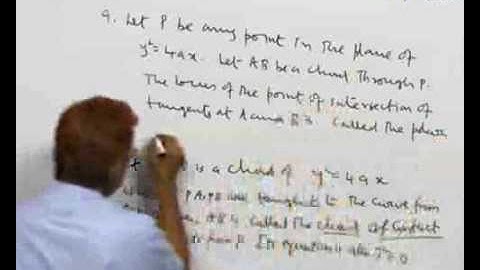 9. Let P be any point in the plane of
y² = 4ax. Let AB be a chord through P.
The locus of the point of intersection of
tangents at A and B is called the polar
is a chord of y² = 4ax
PA, PB are tangents to the curve from
AB is called the chord of contact
from P. Its equation is also